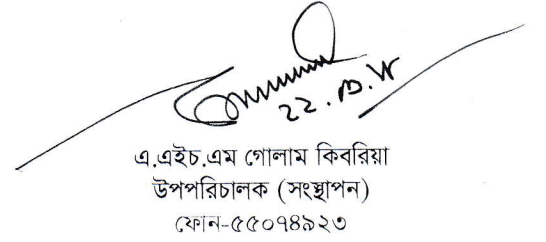 এ.এইচ.এম গোলাম কিবরিয়া
উপপরিচালক (সংস্থাপন)
ফোন-৫৫০৭৪৯২৩